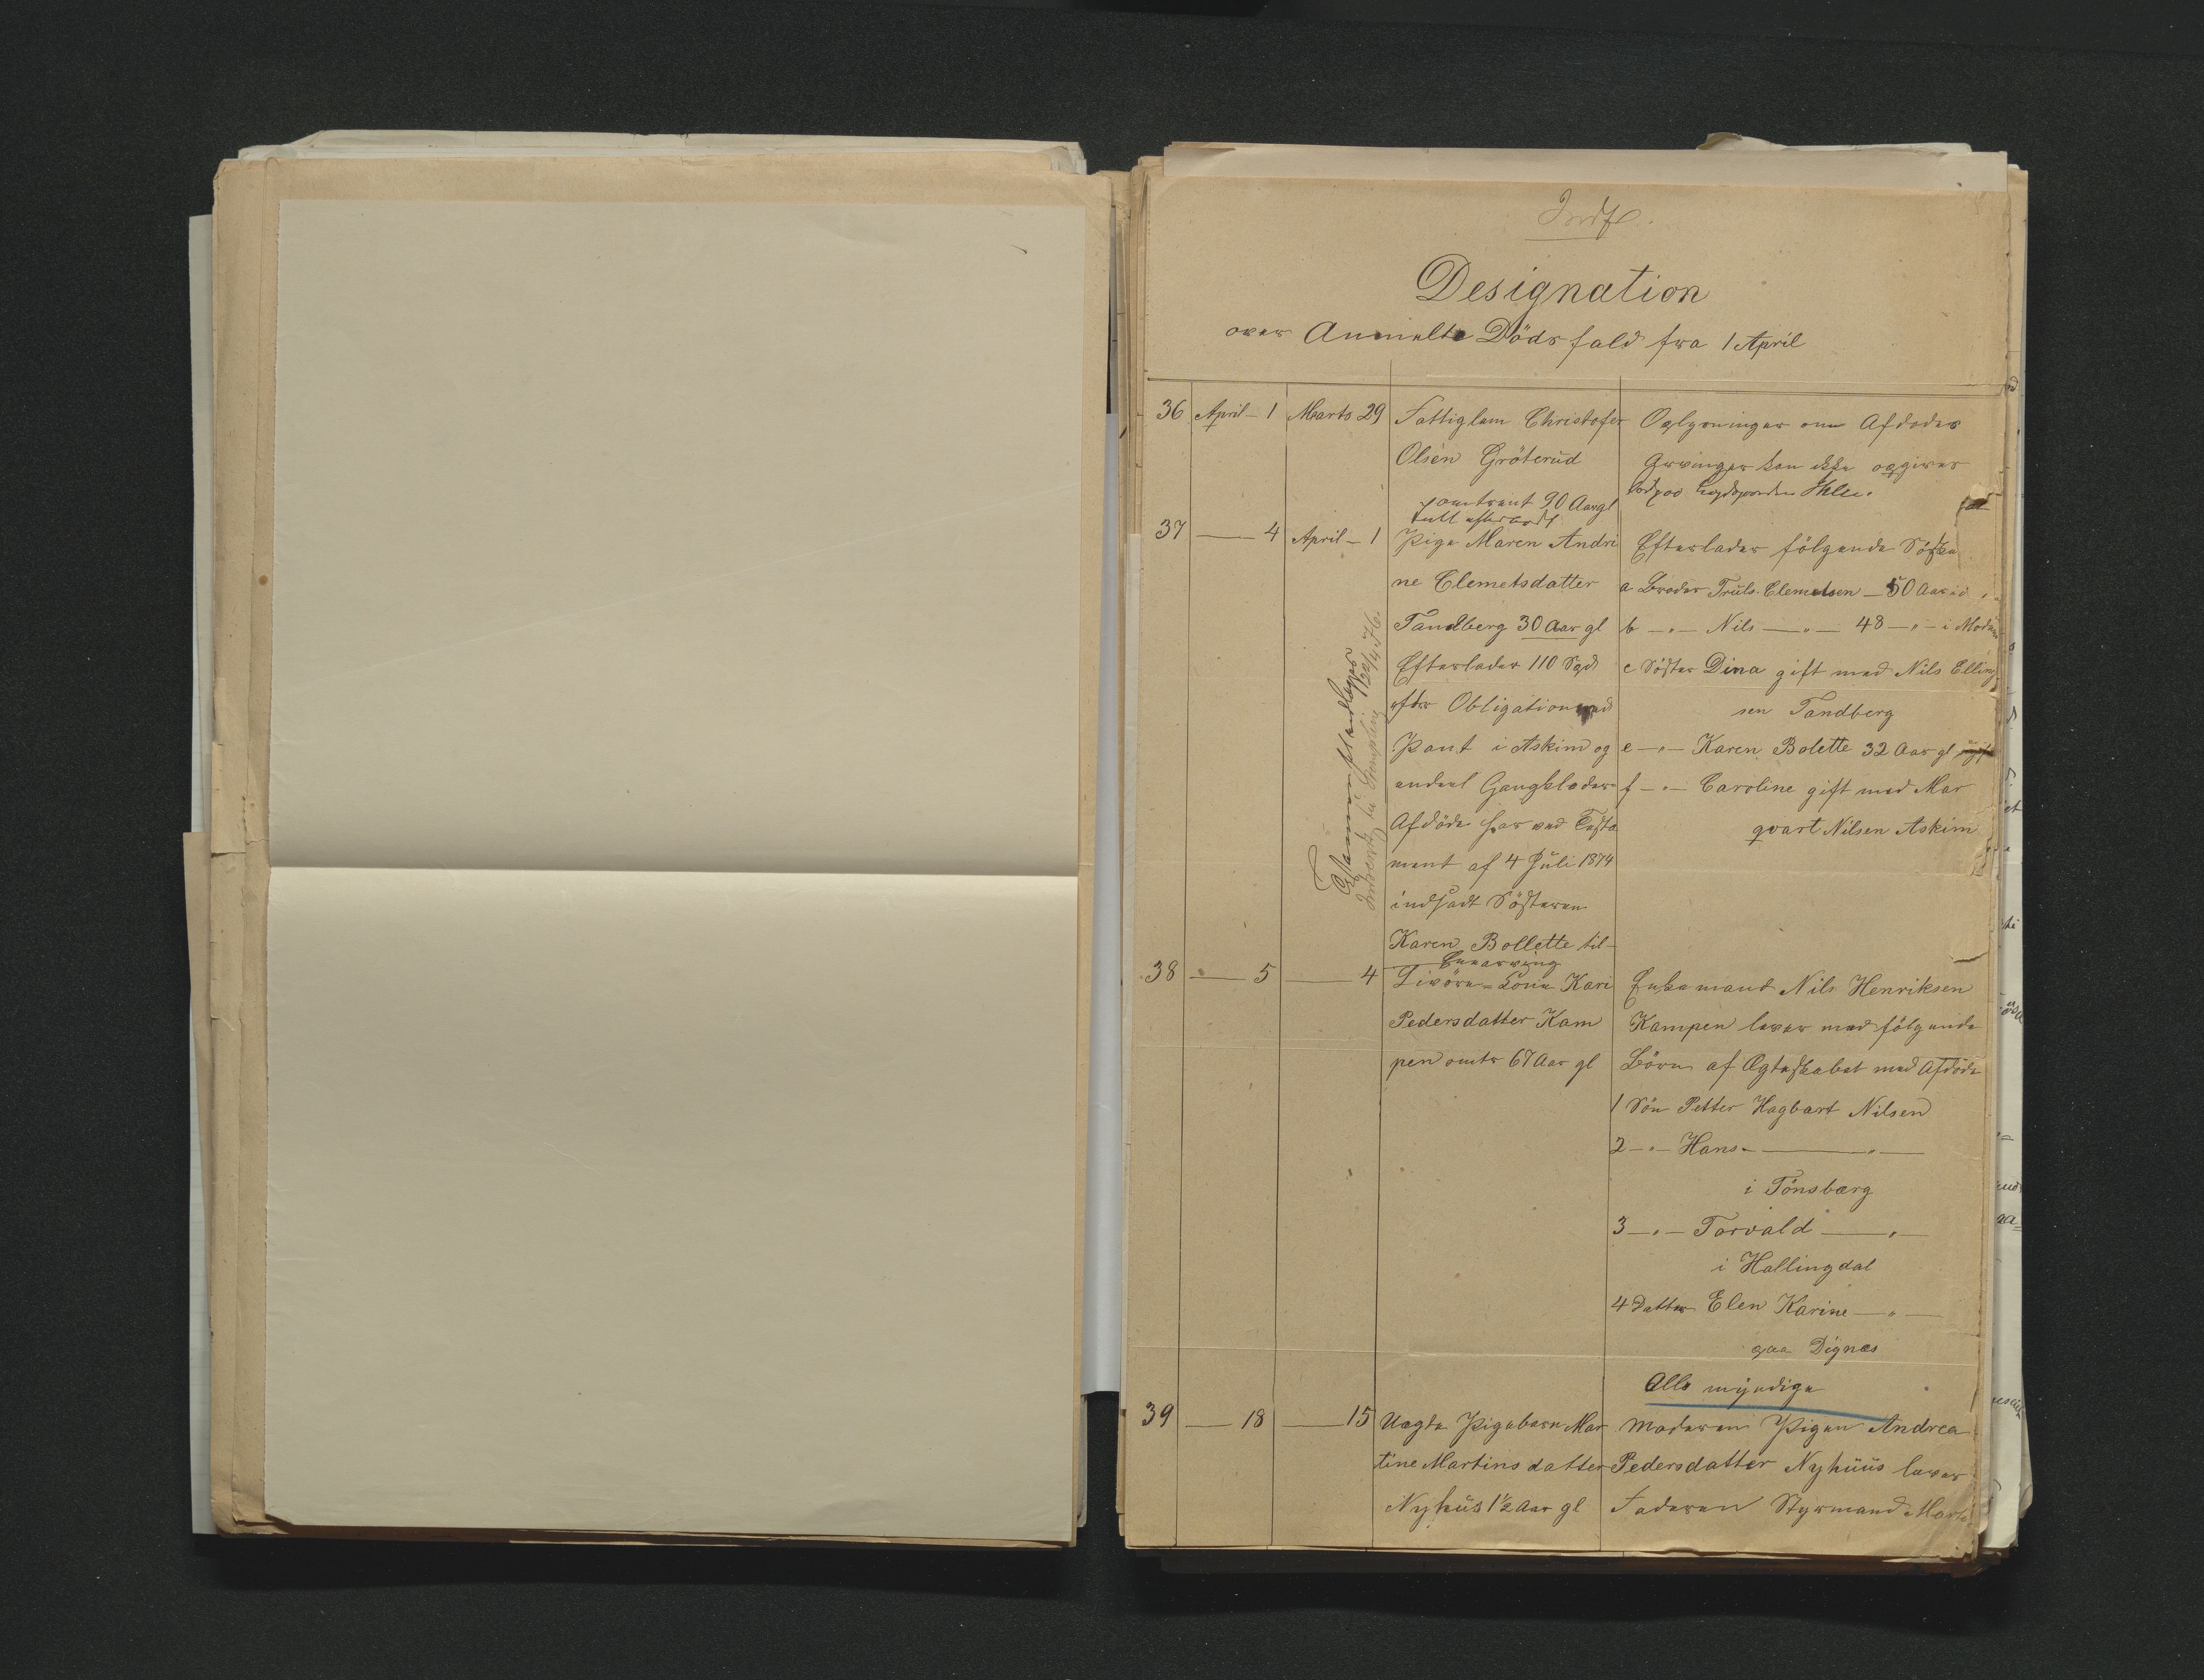 Designation
over Anmeldte Dödsfald fra 1 April
36 April - 1 Marts 29 Fattiglem Christofer
Olsen Gröterud
omtrent 90 Aar gl
Oplysninger om Afdødes
Arvinger kan ikke opgives
37 — 4 April - 1 Pige Maren Andri
ne Clemetsdatter
Tandberg 30 Aar gl
Efterlader 110 Spd
efter Obligation med
Pant i Askim og
endeel Gangklæder
Afdöde har ved Testa
ment af 4 Juli 1874
indsadt Sösteren
Karen Bollette til
Enearving
Efterlader fölgende Södskende
a Broder Truls Clemetsen — 50 Aar
b — " — Nils — " — 48 — " — i Modum
c Söster Dina gift med Nils Elling
sen Tandberg
e — " — Karen Bolette 32 Aar gl ugift
f — " — Caroline gift med Mar
qvart Nilsen Askim
38 — 5 — 4 Livöre-Kone Kari
Pedersdatter Kam
pen omtr 67 Aar gl
Enkemand Nils Henriksen
Kampen lever med fölgende
Börn af Ægteskabet med Afdöde
1 Sön Petter Hagbart Nilsen
2 — " — Hans — " —
i Tönsberg
3 — " — Torvald — " —
i Hallingdal
4 Datter Elen Karine — " —
paa Dignæs
Alle myndige
39 — 18 — 15 Uægte Pigebarn Mar
tine Martinsdatter
Nyhus 1½ Aar gl
Moderen Pigen Andrea
Pedersdatter Nyhuus lever
Faderen Styrmand